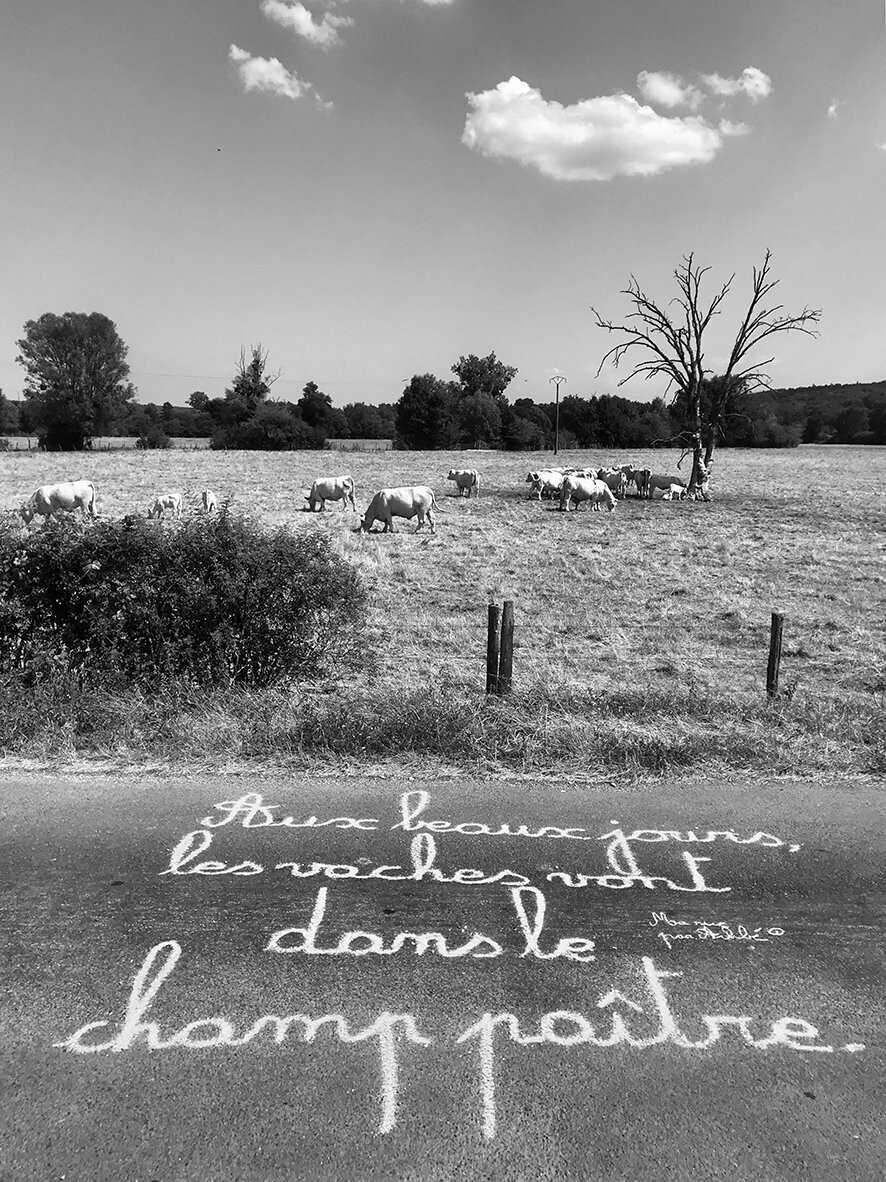 Aux beaux jours,
les vaches vont
dans le
champ paître.
Ma rue
par Achbé